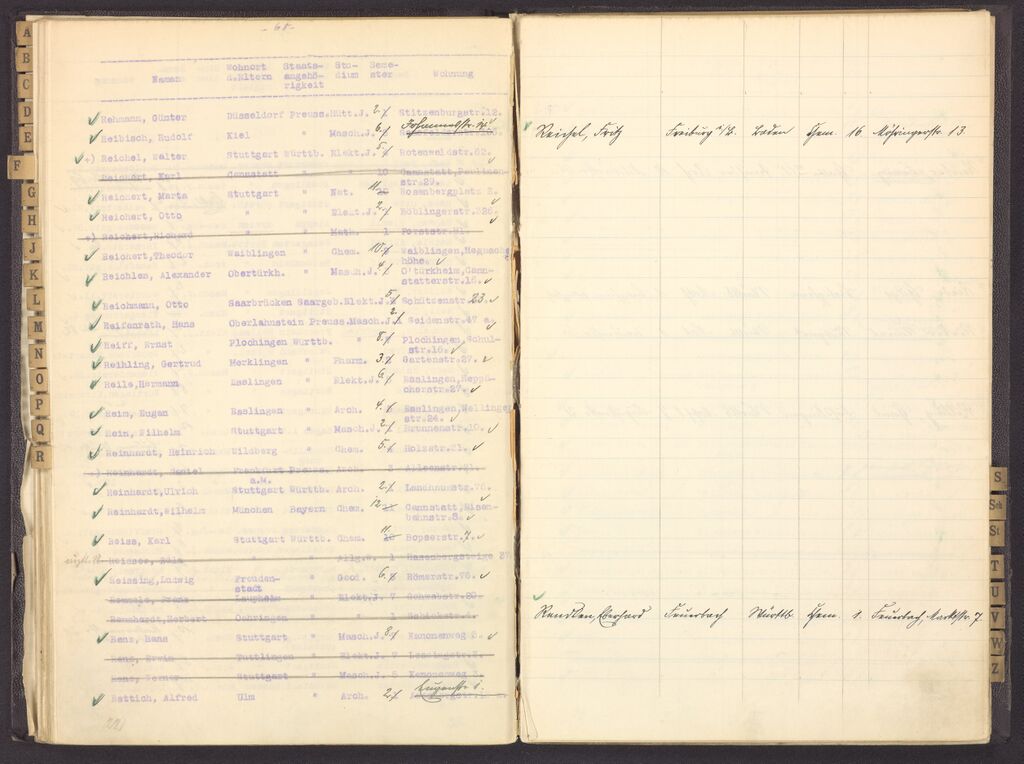 A
B
C
D
E
F
G
H
J
K
L
M
N
O
P
Q
R
- 68 -
Wohnort Staats- Stu- Seme-
Namen d.Eltern angehö- dium ster Wohnung
rigkeit
Rehmann, Günter Düsseldorf Preuss. Hütt.J. 2 Stitzenburgstr.12.
Reibisch, Rudolf Kiel " Masch.J. 6
+) Reichel, Walter Stuttgart Württb. Elekt.J. 5 Rotenwaldstr.62.
Reichert, Karl Cannstatt " " 10 Cannstatt, Paulinen-
str.29.
Reichert, Marta Stuttgart " Nat. 11 Rosenbergplatz 2.
Reichert, Otto " " Elekt.J. 2 Böblingerstr.326.
+) Reichert, Richard " " Math. 1 Forststr.81.
Reichert, Theodor Waiblingen " Chem. 10 Waiblingen, Hegnacher
höhe.
Reichlen, Alexander Obertürkh. " Masch.J. 4 O'türkheim, Cann-
statterstr.16.
Reichmann, Otto Saarbrücken Saargeb. Elekt.J. 5 Schützenstr. 23.
Reifenrath, Hans Oberlahnstein Preuss. Masch.J. 2 Seidenstr.47 a.
Reiff, Ernst Plochingen Württb. " 8 Plochingen, Schul-
str.16.
Reihling, Gertrud Merklingen " Pharm. 3 Gartenstr.27.
Reile, Hermann Esslingen " Elekt.J. 6 Esslingen, Keppl-
cherstr.27.
Reim, Eugen Esslingen " Arch. 4 Esslingen, Wellinger
str.24.
Rein, Wilhelm Stuttgart " Masch.J. 2 Brunnenstr.10.
Reinhardt, Heinrich Wildberg " Chem. 5 Holzstr.21.
+) Reinhardt, Daniel Frankfurt Preuss. Arch. 3
a.M.
Reinhardt, Ulrich Stuttgart Württb. Arch. 2 Landhausstr.76.
Reinhardt, Wilhelm München Bayern Chem. 12 Cannstatt, Eisen-
bahnstr.8.
Reiss, Karl Stuttgart Württb. Chem. 11 Bopserstr. 7.
Reisser, " " Allg.W. 1 Hasenbergsteige
Reissing, Ludwig Freuden- " Geod. 6 Römerstr.76.
stadt
Laupheim " Elekt.J. 7 Schwabstr.20.
Remshardt, Herbert Oehringen " " 1 Schickstr.4.
Renz, Hans Stuttgart " Masch.J. 8 Kanonenweg 6.
Renz, Erwin Tuttlingen " Elekt.J. 7 Lessingstr.8.
Renz, Werner Stuttgart " Masch.J. 5 Kanonenweg 6.
Rettich, Alfred Ulm " Arch. 2
221
Reichel, Fritz Freiburg a/B. Baden Chem. 16. Möhringerstr. 13.
Rendlen, Eberhard Feuerbach Württb. Chem 1. Feuerbach, Marktstr. 7
S
Sch
St
T
U
V
W
Z